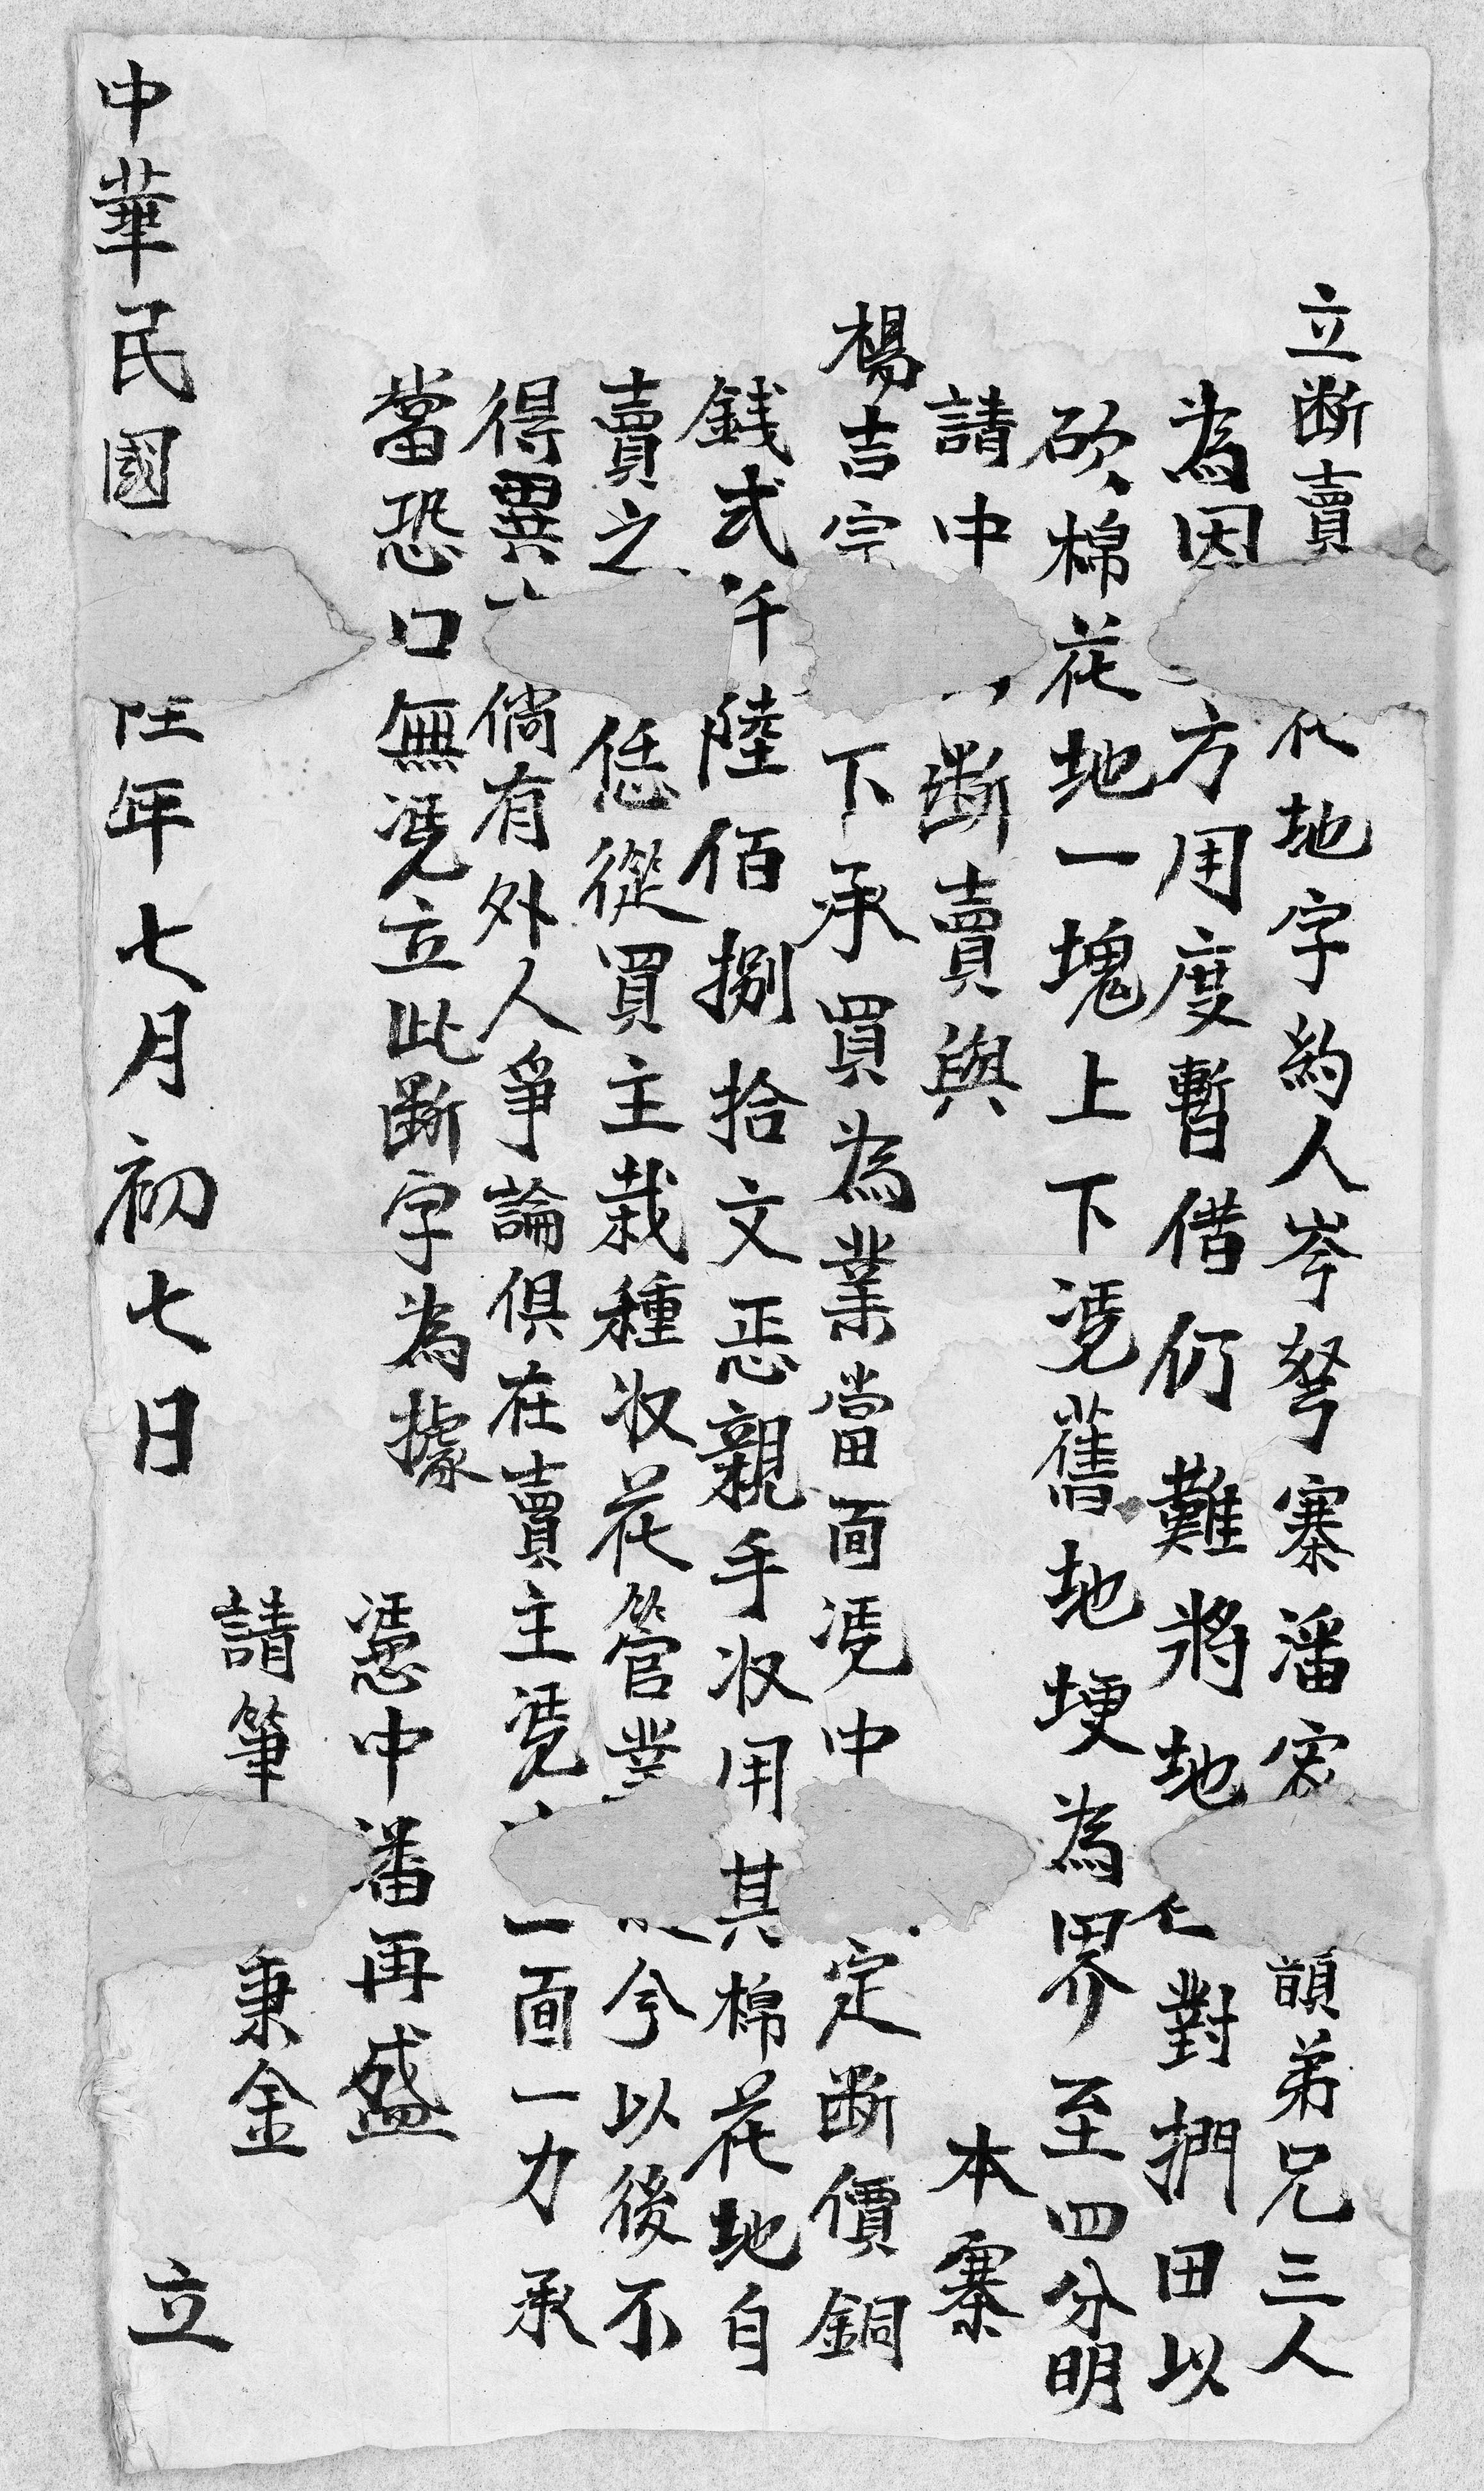 立断賣 花地字約人岑努寨潘宏 頭弟兄三人
為因 方用度暫借仍難將地 仁對捫田以
砍棉花地一塊上下凴舊地埂為界至四分明
請中 断賣與 本寨
楊吉宗 下承買為業當面凴中 定断價銅
銭弍仟陸佰捌拾文恧親手收用其棉花地自
賣之 恁從買主栽種收花管業 今以後不
得異 倘有外人爭論俱在賣主凴 一面一力承
當恐口無凴立此断字為據
憑中潘再盛
請筆 秉金
中華民國 年七月初七日 立